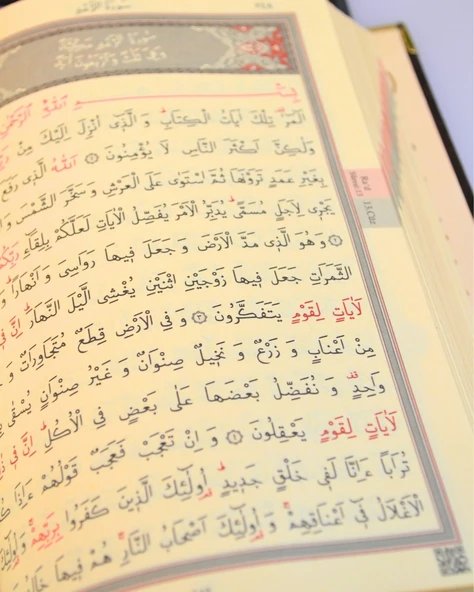 سورة الرعد
سورة الرعد مكية
وهي ثلث واربعون آية
بِسْمِ اللّٰهِ الرَّحْمٰنِ
الٓمٓرٰ تِلْكَ اٰيَاتُ الْكِتَابِ وَالَّذ۪ٓي اُنْزِلَ اِلَيْكَ مِنْ
وَلٰكِنَّ اَكْثَرَ النَّاسِ لَا يُؤْمِنُونَ ١ اَللّٰهُ الَّذ۪ي رَفَعَ
بِغَيْرِ عَمَدٍ تَرَوْنَهَا ثُمَّ اسْتَوٰى عَلَى الْعَرْشِ وَسَخَّرَ الشَّمْسَ
يَجْر۪ي لِاَجَلٍ مُسَمًّىۜ يُدَبِّرُ الْاَمْرَ يُفَصِّلُ الْاٰيَاتِ لَعَلَّكُمْ بِلِقَٓاءِ
٢ وَهُوَ الَّذ۪ي مَدَّ الْاَرْضَ وَجَعَلَ ف۪يهَا رَوَاسِيَ وَاَنْهَارًا
الثَّمَرَاتِ جَعَلَ ف۪يهَا زَوْجَيْنِ اثْنَيْنِ يُغْشِي الَّيْلَ النَّهَارَۜ اِنَّ
لَاٰيَاتٍ لِقَوْمٍ يَتَفَكَّرُونَ ٣ وَفِي الْاَرْضِ قِطَعٌ مُتَجَاوِرَاتٌ
مِنْ اَعْنَابٍ وَزَرْعٌ وَنَخ۪يلٌ صِنْوَانٌ وَغَيْرُ صِنْوَانٍ يُسْقٰى
وَاحِدٍ وَنُفَضِّلُ بَعْضَهَا عَلٰى بَعْضٍ فِي الْاُكُلِۜ اِنَّ ف۪ي
لَاٰيَاتٍ لِقَوْمٍ يَعْقِلُونَ ٤ وَاِنْ تَعْجَبْ فَعَجَبٌ قَوْلُهُمْ ءَاِذَا
تُرَابًا ءَاِنَّا لَف۪ي خَلْقٍ جَد۪يدٍۜ اُو۬لٰٓئِكَ الَّذ۪ينَ كَفَرُوا بِرَبِّهِمْۚ وَاُو۬لٰٓئِكَ
الْاَغْلَالُ ف۪ٓي اَعْنَاقِهِمْۚ وَاُو۬لٰٓئِكَ اَصْحَابُ النَّارِۚ هُمْ ف۪يهَا